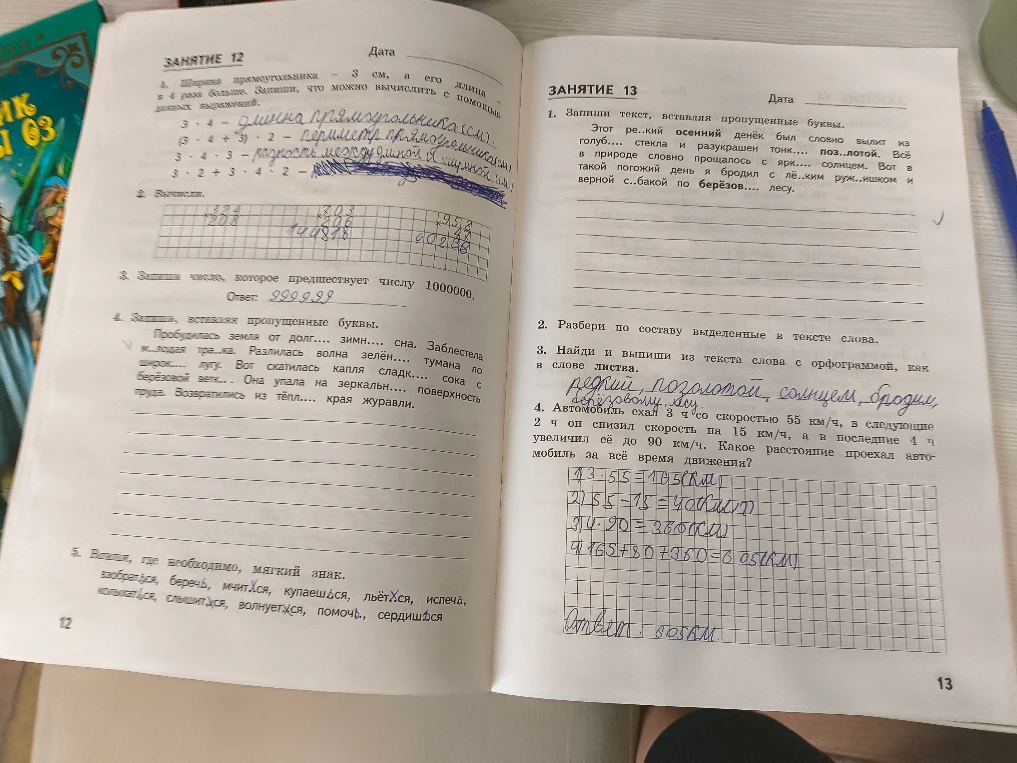 ЗАНЯТИЕ 12
Дата
1. Ширина прямоугольника – 3 см, а его длина –
в 4 раза больше. Запиши, что можно вычислить с помощью
данных выражений.
3 · 4 – длинна прямоугольника(см).
(3 · 4 + 3) · 2 – периметр прямоугольника(см)
3 · 4 · 3 –
3 · 2 + 3 · 4 · 2 –
2. Вычисли.
208 206
144818 40236
3. Запиши число, которое предшествует числу 1000000.
Ответ: 999999
4. Запиши, вставляя пропущенные буквы.
Пробудилась земля от долг.... зимн.... сна. Заблестела
м..лодая тра..ка. Разлилась волна зелён.... тумана по
широк.... лугу. Вот скатилась капля сладк.... сока с
берёзовой ветк... Она упала на зеркальн.... поверхность
пруда. Возвратились из тёпл.... края журавли.
5. Вставь, где необходимо, мягкий знак.
взобраться, беречь, мчитХся, купаешься, льётХся, испечь,
колыхаться, слышитхся, волнуетхся, помочь., сердишься
12
ЗАНЯТИЕ 13
Дата
1. Запиши текст, вставляя пропущенные буквы.
Этот ре..кий осенний денёк был словно вылит из
голуб.... стекла и разукрашен тонк.... поз..лотой. Всё
в природе словно прощалось с ярк.... солнцем. Вот в
такой погожий день я бродил с лё..ким руж..ишком и
верной с..бакой по берёзов.... лесу.
2. Разбери по составу выделенные в тексте слова.
3. Найди и выпиши из текста слова с орфограммой, как
в слове листва.
редкий, позолотой, солнцем, бродил,
берёзовому лесу.
4. Автомобиль ехал 3 ч со скоростью 55 км/ч, в следующие
2 ч он снизил скорость на 15 км/ч, а в последние 4 ч
увеличил её до 90 км/ч. Какое расстояние проехал авто-
мобиль за всё время движения?
1)3·55=165(КМ)
2)55-15=40(КМ/ч)
3)4·90=360(КМ)
4)165+80+360=605(КМ)
Ответ: 605КМ
13